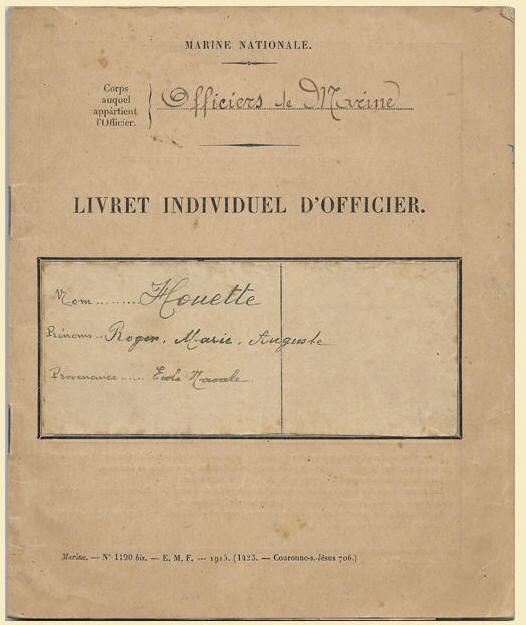 MARINE NATIONALE.
Corps
auquel
appartient
l'Officier.
Officiers de Marine
LIVRET INDIVIDUEL D'OFFICIER.
Nom ........ Houette
Prénoms .. Roger, Marie, Auguste
Provenance ..... Ecole Navale
Marine. — N° 1190 bis. — E. M. F. --- 1915. (1423. — Couronne-s.-Jésus 706.)